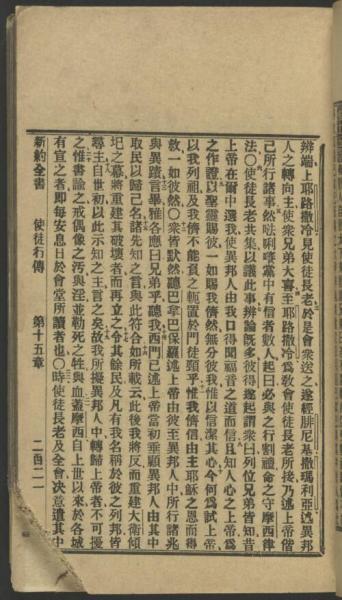 辨端上耶路撒冷見使徒長老於是會衆送之遂經腓尼基撒瑪利亞述異邦
人之轉向主使衆兄弟大喜至耶路撒冷爲教會使徒長老所接乃述上帝偕
己所行諸事然𠵽唎㘔黨中有信者數人起曰必與之行割禮命之守摩西律
法〇使徒長老共集以議此事辯論旣多彼得遂起謂衆曰列位兄弟皆知昔
上帝在爾中選我使異邦人由我口得聞福音之道而信且知人心之上帝爲
之作證以聖靈賜彼一如賜我儕然無分彼我惟以信潔其心今何爲試上帝
以我列祖及我儕不能負之軛置於門徒頸乎惟我儕信由主耶穌之恩而得
救一如彼然〇衆皆默然聽巴拿巴保羅述上帝由彼於異邦人中所行諸兆
與異蹟言畢雅各應曰兄弟乎聽我西門已述上帝當初垂顧異邦人由其中
取民以歸己名諸先知之言與此符合如所載云此後我將反而重建大衛傾
圮之幕將重建其破壞者而再立之令其餘民及凡有我名稱於彼之列邦皆
尋主自世初以此示知之主言之矣故我所擬異邦人中轉歸上帝者不可擾
之惟書諭之戒偶像之汚與淫並勒死之牲與血蓋摩西自上世以來於各城
有宣之者即每安息日於會堂所讀者也〇時使徒長老及全會決意遣其中
新約全書 使徒行傳 第十五章 二百二一